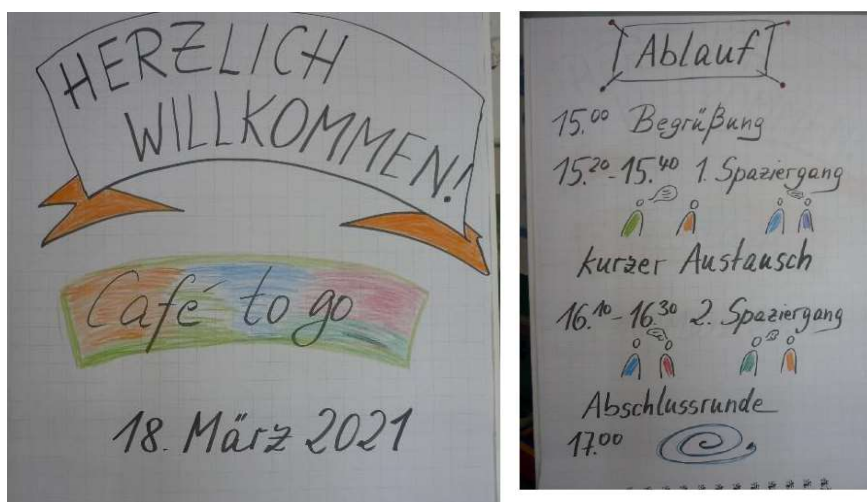 HERZLICH
WILLKOMMEN!
Café to go
18. März 2021
Ablauf
15.00 Begrüßung
15.20-15.40 1. Spaziergang
kurzer Austausch
16.10-16.30 2. Spaziergang
Abschlussrunde
17.00